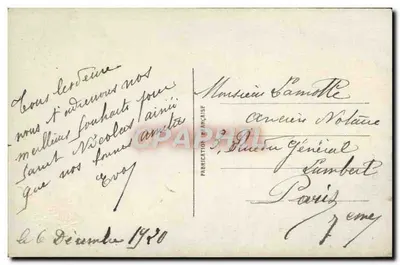 Tous les deux
nous t'adressons nos
meilleurs souhaits pour
Saint Nicolas ainsi
que nos bonnes amitiés
le 6 Décembre 1920
FABRICATION FRANÇAISE
Monsieur Lamotte
ancien Notaire
5, Rue du Général
Lambert
Paris
7eme